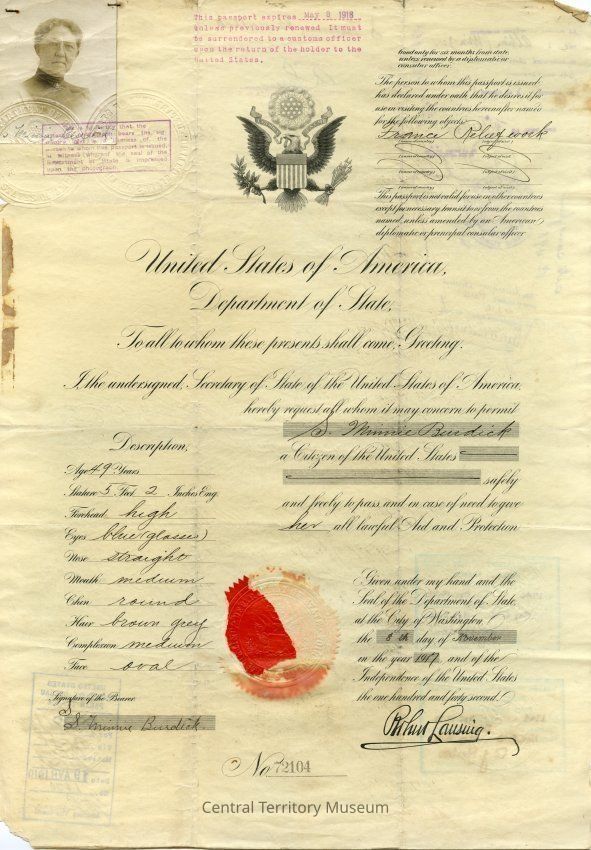 This passport expires May 8, 1918
unless previously renewed. It must
be surrendered to a customs officer
upon the return of the holder to the
United States.
good only for six months from date,
unless renewed by a diplomatic or
consular officer.
The person to whom this passport is issued
has declared under oath that he desires it for
use in visiting the countries hereinafter named
for the following objects:
France Relief work
(Name of country) (object of visit)
(Name of country) (object of visit)
(Name of country) (object of visit)
This passport is not valid for use in other countries
except for necessary transit to or from the countries
named, unless amended by an American
diplomatic or principal consular officer
This is to certify that the
photograph
to whom this passport is issued.
In witness whereof the seal of the
Department of State is impressed
upon the photograph.
United States of America,
Department of State,
To all to whom these presents shall come, Greeting:
I, the undersigned, Secretary of State of the United States of America,
hereby request all whom it may concern to permit
S. Minnie Burdick
a Citizen of the United States
safely
and freely to pass, and in case of need to give
her all lawful Aid and Protection
Description,
Age 49 Years
Stature 5 Feet 2 Inches Eng.
Forehead high
Eyes blue (glasses)
Nose straight
Mouth medium
Chin round
Hair brown grey
Complexion medium
Face oval
Signature of the Bearer
S. Minnie Burdick
Given under my hand and the
Seal of the Department of State,
at the City of Washington
the 8th day of November
in the year 1917, and of the
Independence of the United States
the one hundred and forty second.
Robert Lansing.
No 72104
Central Territory Museum